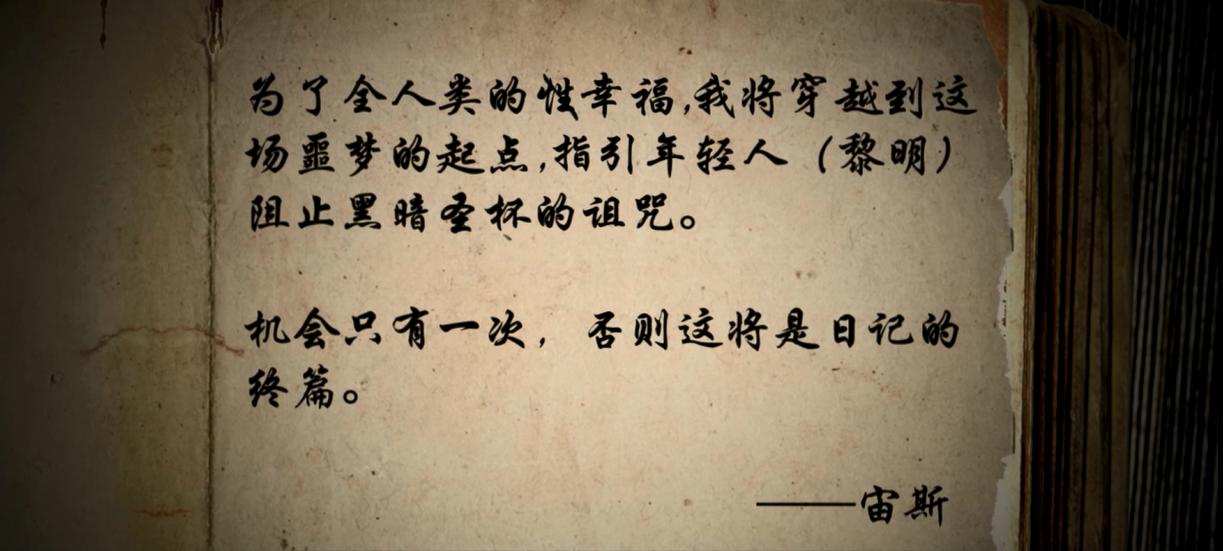 为了全人类的性幸福,我将穿越到这
场噩梦的起点,指引年轻人（黎明）
阻止黑暗圣杯的诅咒。
机会只有一次，否则这将是日记的
终篇。
——宙斯